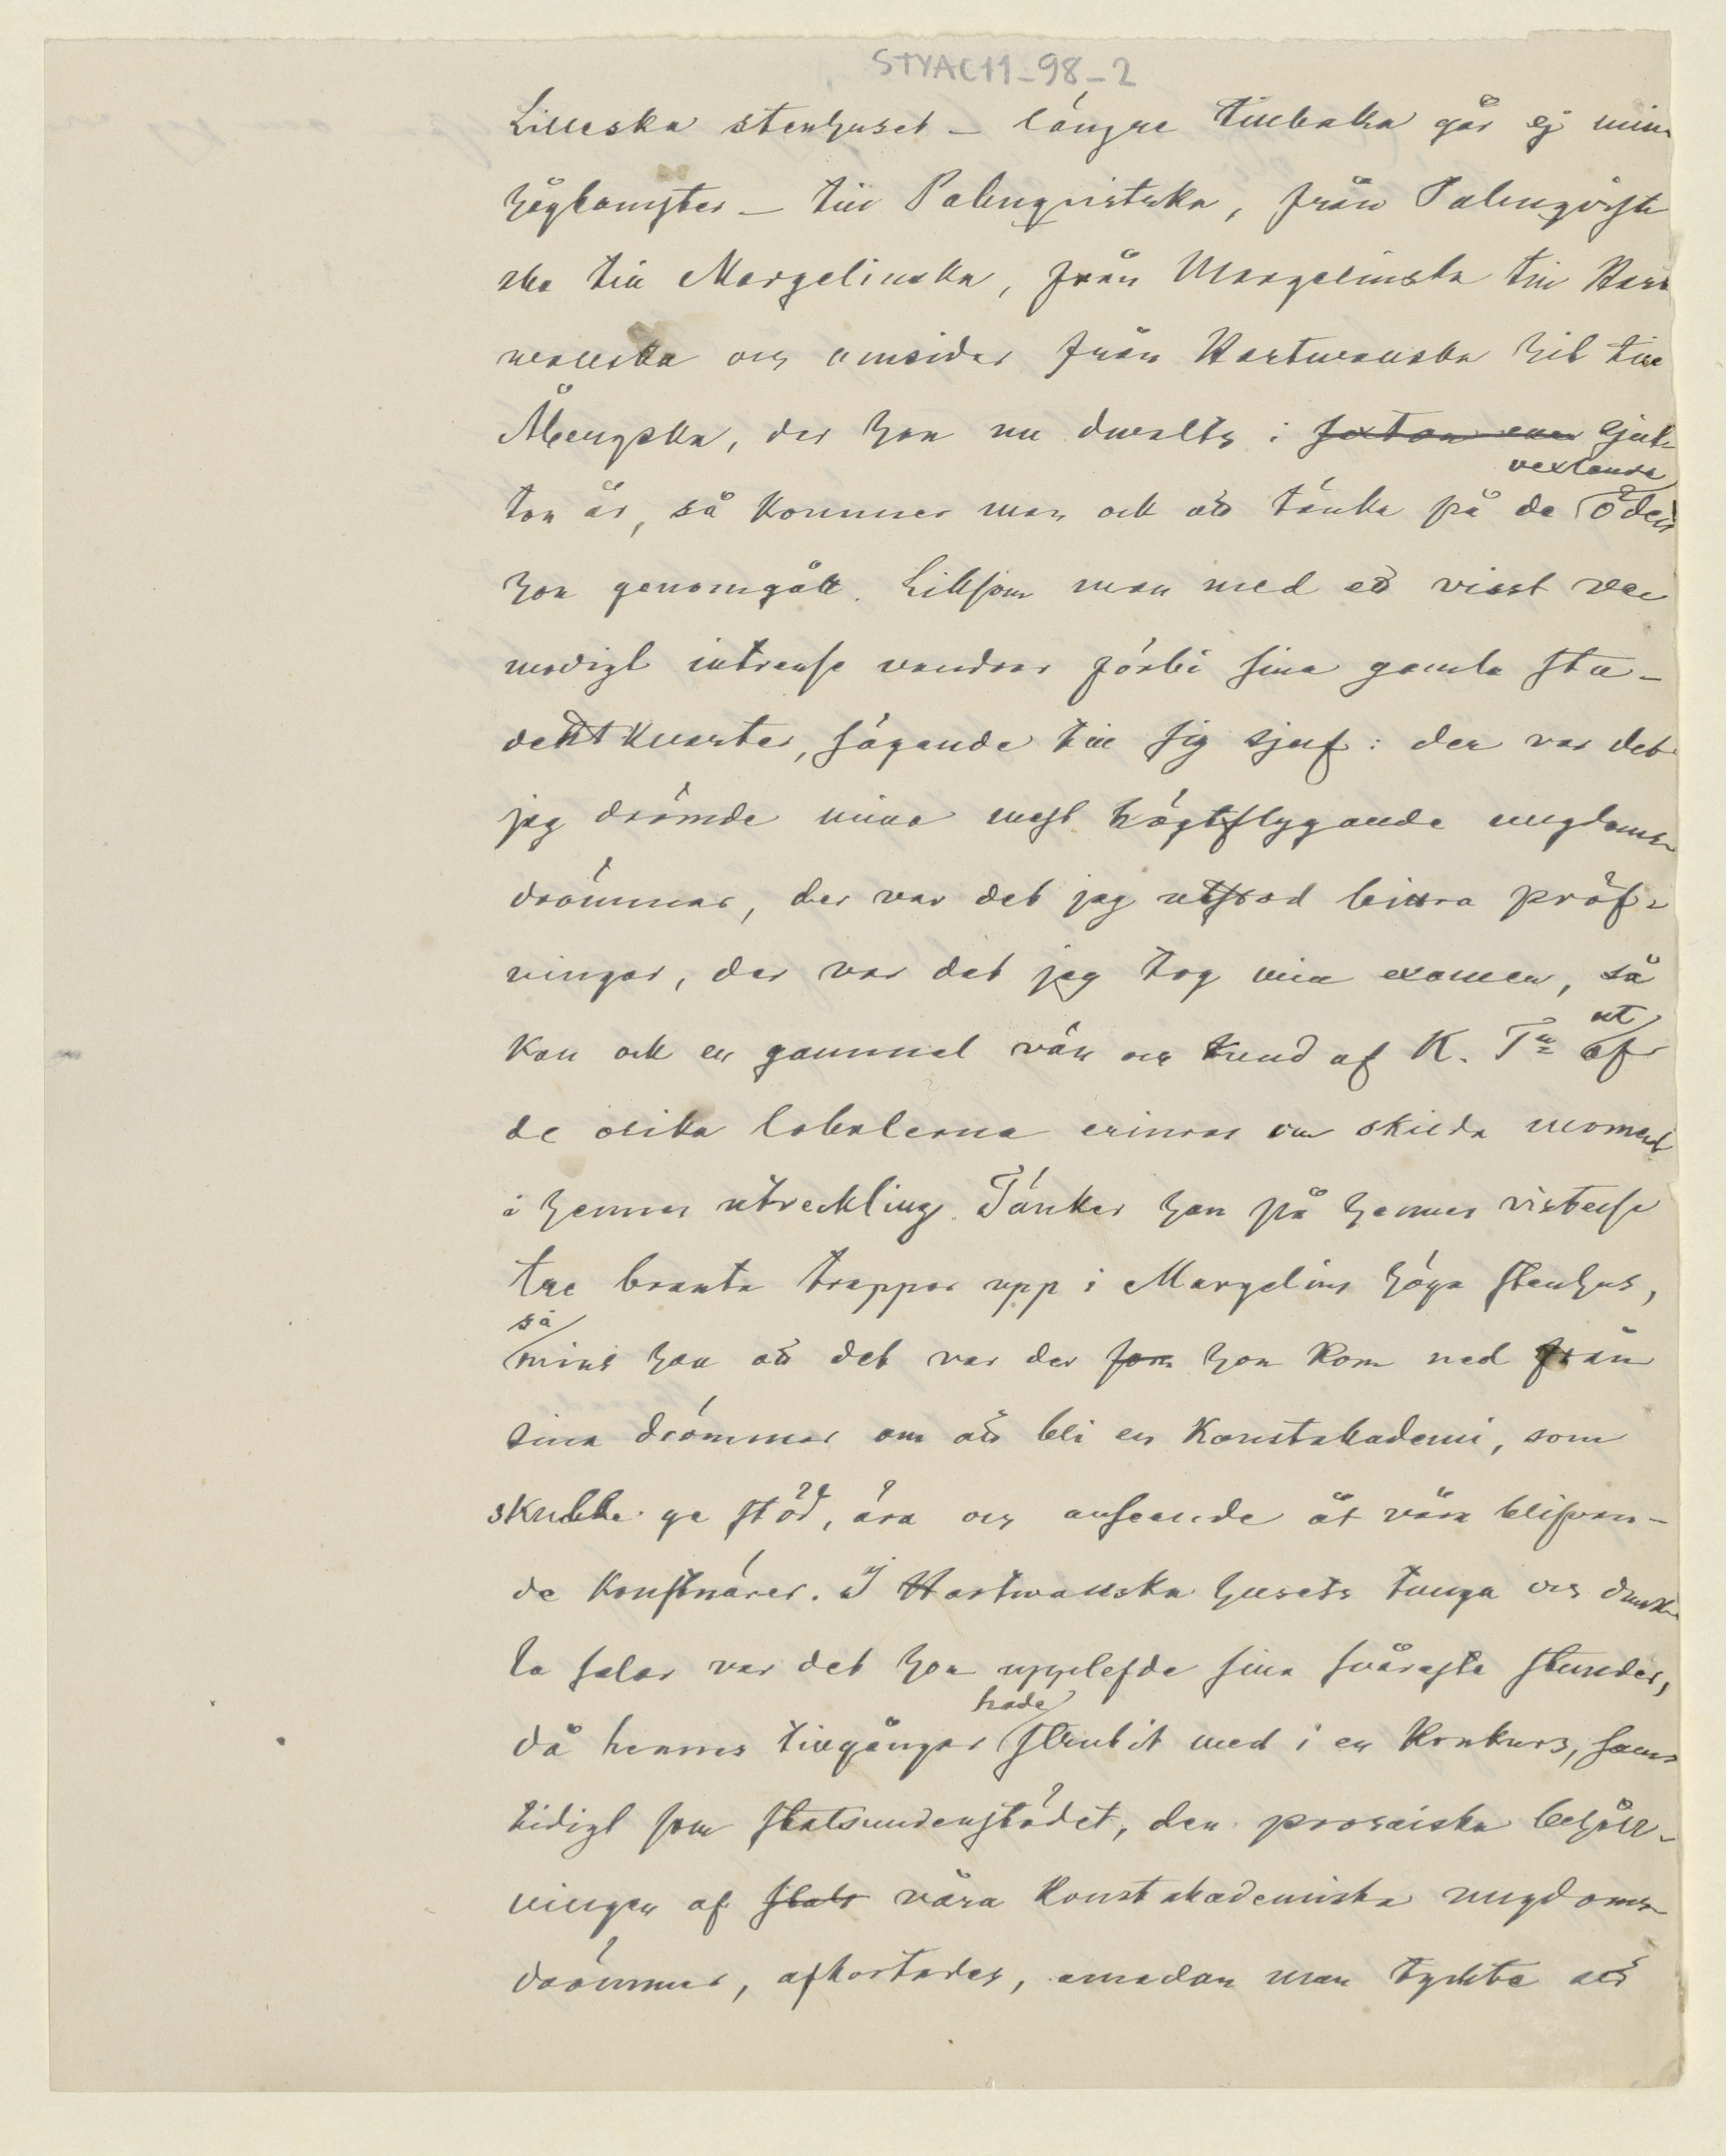 STYAC11-98-2
Lilleska stenhuset – längre tillbaka går ej mina
hågkomster – till Palmqvistska, från Palmqvist
ska till Margelinska, från Margelinska till Hart
wallska och omsider från Hartwallska hit till
Åbergska, der hon nu dvalts i sexton sjut-
vexlande
ton år, så kommer man ock att tänka på de öden
hon genomgått. Liksom man med ett visst ve
modigt intresse vandrar förbi sina gamla stu-
dentkvarter, sägande till sig sjelf: der var det
jag drömde mina mest högtflygande ungdoms-
drömmar, der var det jag utstod bittra pröf-
ningar, der var det jag tog min examen, så
ut
kan ock en gammal vän och kund af K. Tn af
de olika lokalerna erinras om skilda moment
i hennes utveckling. Tänker han på hennes vistelse
tre branta trappor upp i Margelins höga stenhus,
så
mins han att det var der som hon kom ned från
sina drömmar om att bli en Konstakademi, som
skulle ge stöd, ära och anseende åt våra blifvan-
de Konstnärer. I Hartwallska husets tunga och dunk-
la salar var det hon upplefde sina svåraste stunder,
hade
då hennes tillgångar strukit med i en Konkurs, sam-
tidigt som statsunderstödet, den prosaiska behåll-
ningen af stats våra Konstakademiska ungdoms-
drömmar, afkortades, emedan man tyckte att